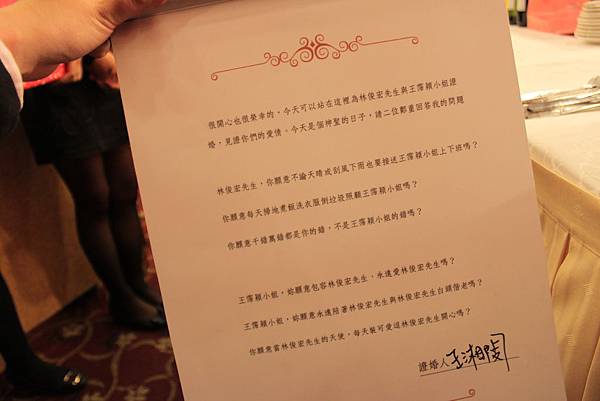 很開心也很榮幸的，今天可以站在這裡為林俊宏先生與王霈穎小姐證
婚，見證你們的愛情。今天是個神聖的日子，請二位鄭重回答我的問題
林俊宏先生，你願意不論天晴或刮風下雨也要接送王霈穎小姐上下班嗎？
你願意每天掃地煮飯洗衣服倒垃圾照顧王霈穎小姐嗎？
你願意千錯萬錯都是你的錯，不是王霈穎小姐的錯嗎？
王霈穎小姐，妳願意包容林俊宏先生、永遠愛林俊宏先生嗎？
王霈穎小姐，妳願意永遠陪著林俊宏先生與林俊宏先生白頭偕老嗎？
你願意當林俊宏先生的天使，每天裝可愛逗林俊宏先生開心嗎？
證婚人